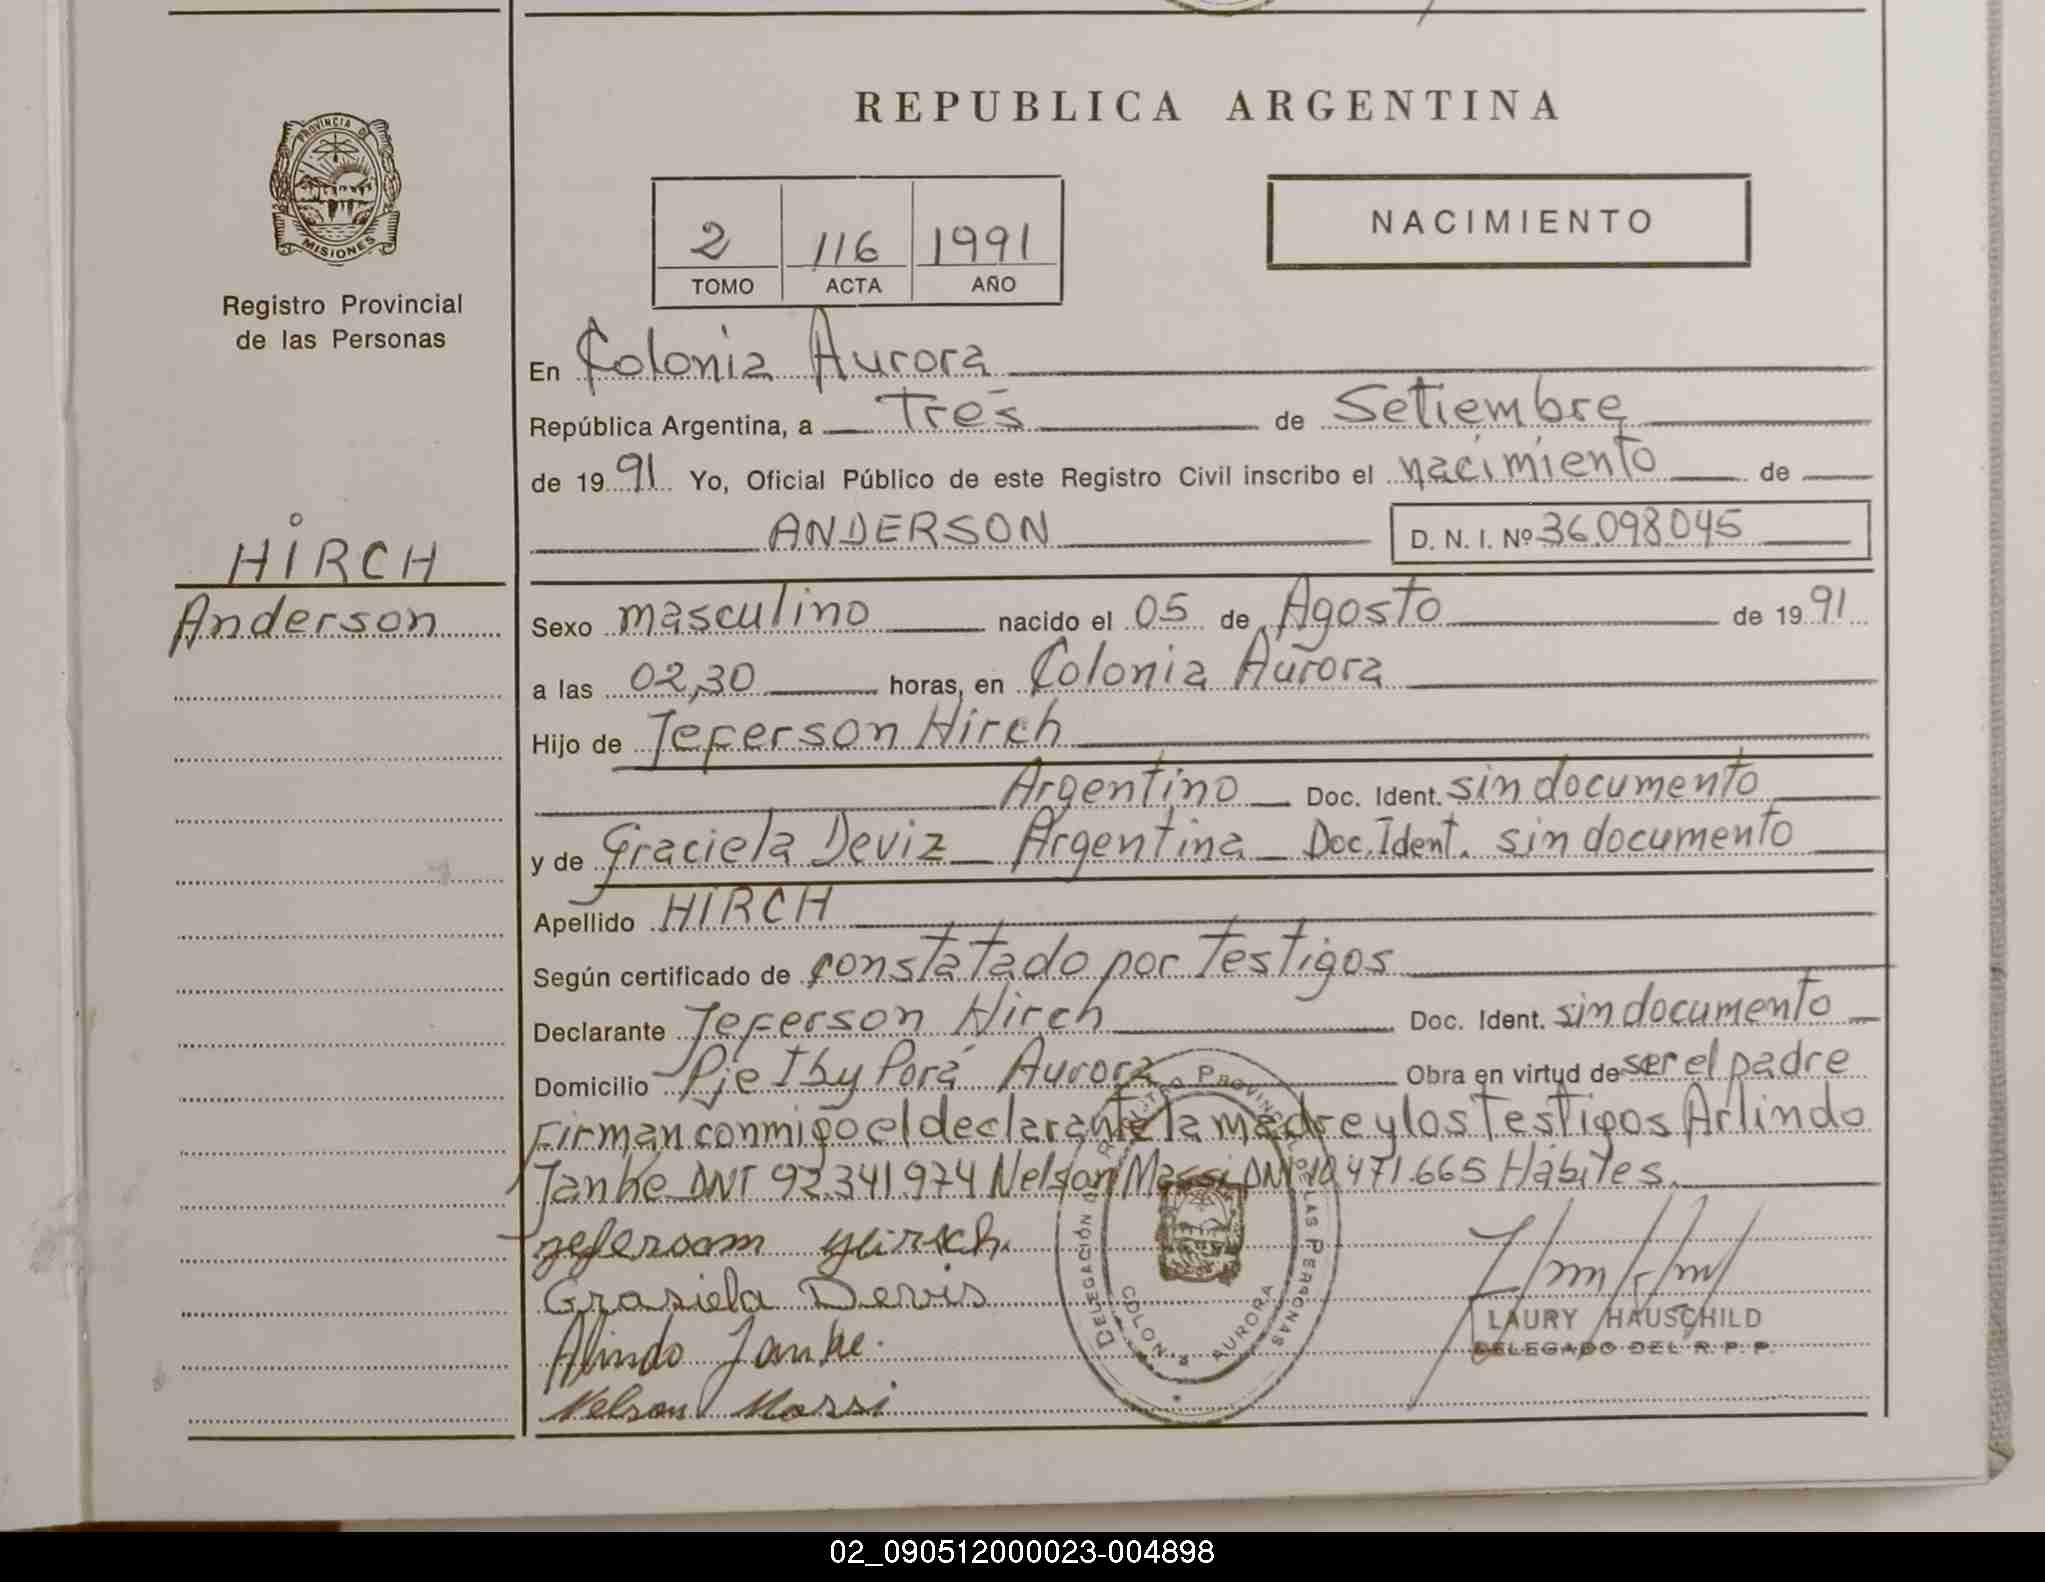 REPUBLICA ARGENTINA
PROVINCIA DE
MISIONES
Registro Provincial
de las Personas
2 116 1991
TOMO ACTA AÑO
NACIMIENTO
En Colonia Aurora
República Argentina, a Tres de Setiembre
de 1991 Yo, Oficial Público de este Registro Civil inscribo el nacimiento de
ANDERSON D. N. I. Nº 36.098.045
HIRCH
Anderson
Sexo masculino nacido el 05 de Agosto de 1991
a las 02,30 horas, en Colonia Aurora
Hijo de Jeferson Hirch
Argentino Doc. Ident. sin documento
y de Graciela Deviz Argentina Doc. Ident. sin documento
Apellido HIRCH
Según certificado de constatado por Testigos
Declarante Jeferson Hirch Doc. Ident. sin documento
Domicilio Pje Iby Porá Aurora Obra en virtud de ser el padre
Firman conmigo el declarante la madre y los Testigos Arlindo
Janke DNI 92.341.974 Nelson Massi DNI 10.471.665 Hábiles.
Grasiela Devis
Alindo Janke.
Nelson Massi
DELEGACIÓN REGISTRO PROVINCIAL DE LAS PERSONAS
COLONIA AURORA
LAURY HAUSCHILD
DELEGADO DEL R. P. P.
02_090512000023-004898